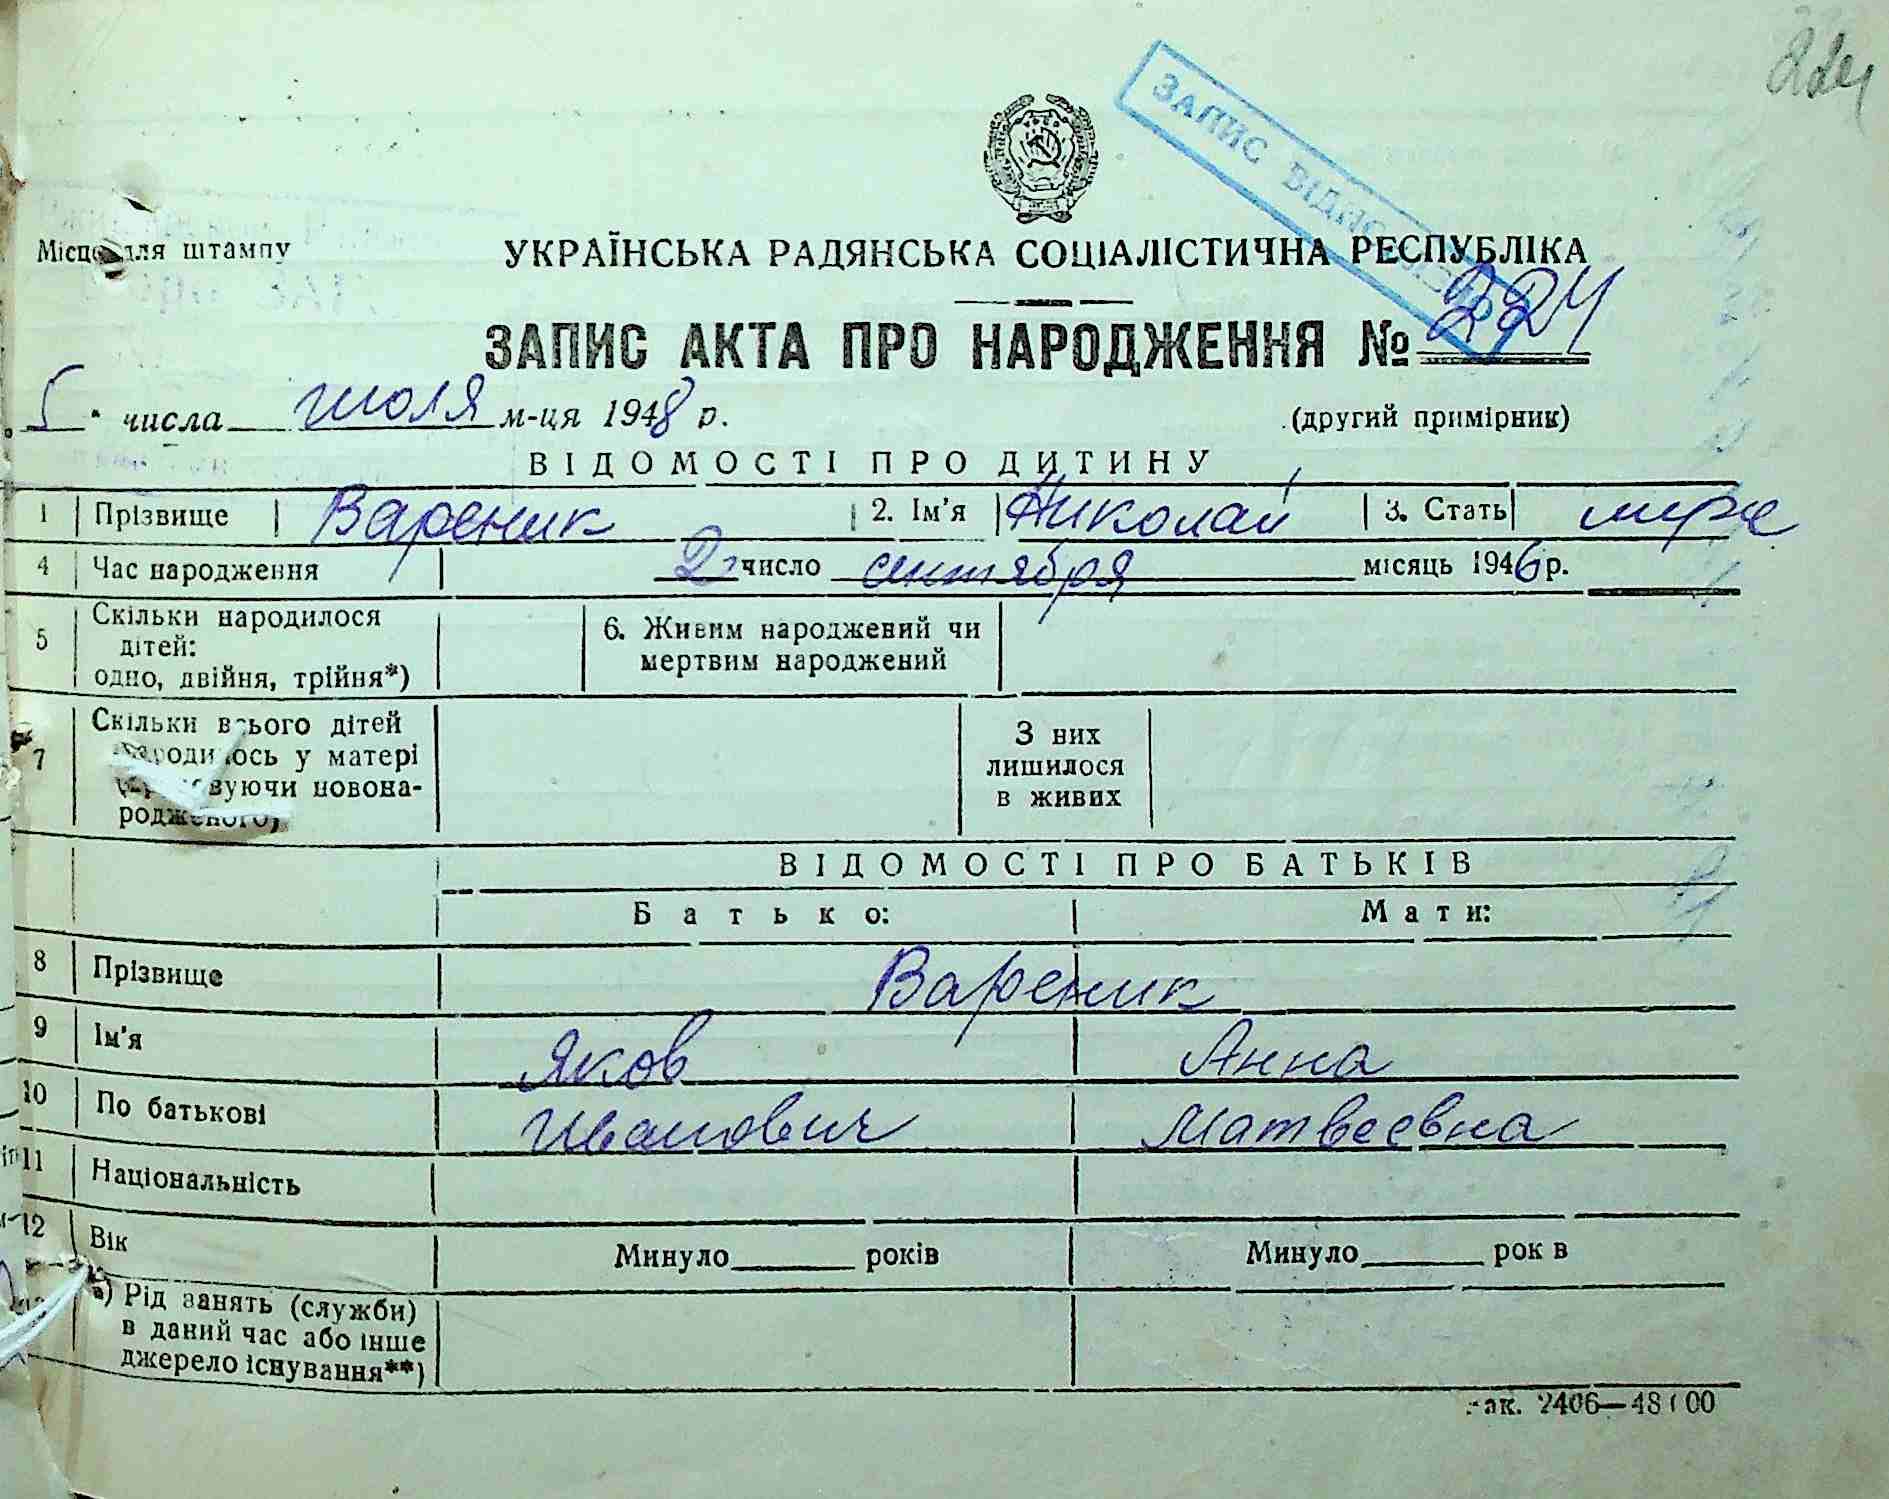 224
ЗАПИС ВІДНОВЛЕНО
Місце для штампу
УКРАЇНСЬКА РАДЯНСЬКА СОЦІАЛІСТИЧНА РЕСПУБЛІКА
ЗАПИС АКТА ПРО НАРОДЖЕННЯ № 224
„5“ числа июля м-ця 1948 р.
(другий примірник)
ВІДОМОСТІ ПРО ДИТИНУ
1 Прізвище Вареник 2. Ім'я Николай 3. Стать муж
4 Час народження 2 число сентября місяць 1946 р.
5 Скільки народилося
дітей:
одно, двійня, трійня*)
6. Живим народжений чи
мертвим народжений
7 Скільки всього дітей
народилось у матері
новона-
родженого)
З них
лишилося
в живих
ВІДОМОСТІ ПРО БАТЬКІВ
Батько: Мати:
8 Прізвище Вареник
9 Ім'я Яков Анна
10 По батькові Иванович Матвеевна
11 Національність
12 Вік Минуло років Минуло рок в
а) Рід занять (служби)
в даний час або інше
джерело існування**)
зак. 2406—48